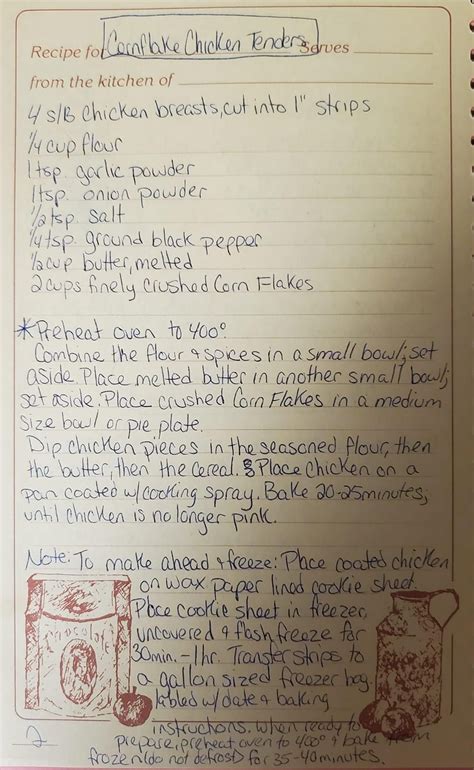 Recipe for Cornflake Chicken Tenders Serves
from the kitchen of
4 s/b chicken breasts, cut into 1" strips
1/4 cup flour
1 tsp. garlic powder
1 tsp. onion powder
1/2 tsp. salt
1/4 tsp. ground black pepper
1/2 cup butter, melted
2 cups finely crushed Corn Flakes
*Preheat oven to 400°
Combine the flour & spices in a small bowl; set
aside. Place melted butter in another small bowl;
set aside. Place crushed Corn Flakes in a medium
size bowl or pie plate.
Dip chicken pieces in the seasoned flour, then
the butter, then the cereal. Place chicken on a
pan coated w/cooking spray. Bake 20-25 minutes;
until chicken is no longer pink.
Note: To make ahead & freeze: Place coated chicken
on wax paper lined cookie sheet.
Place cookie sheet in freezer,
uncovered & flash freeze for
30 min. - 1 hr. Transfer strips to
a gallon sized freezer bag.
labled w/date & baking
instructions. When ready to
prepare, preheat oven to 400° & bake from
frozen (do not defrost) for 35-40 minutes.
CHOCOLATE
2